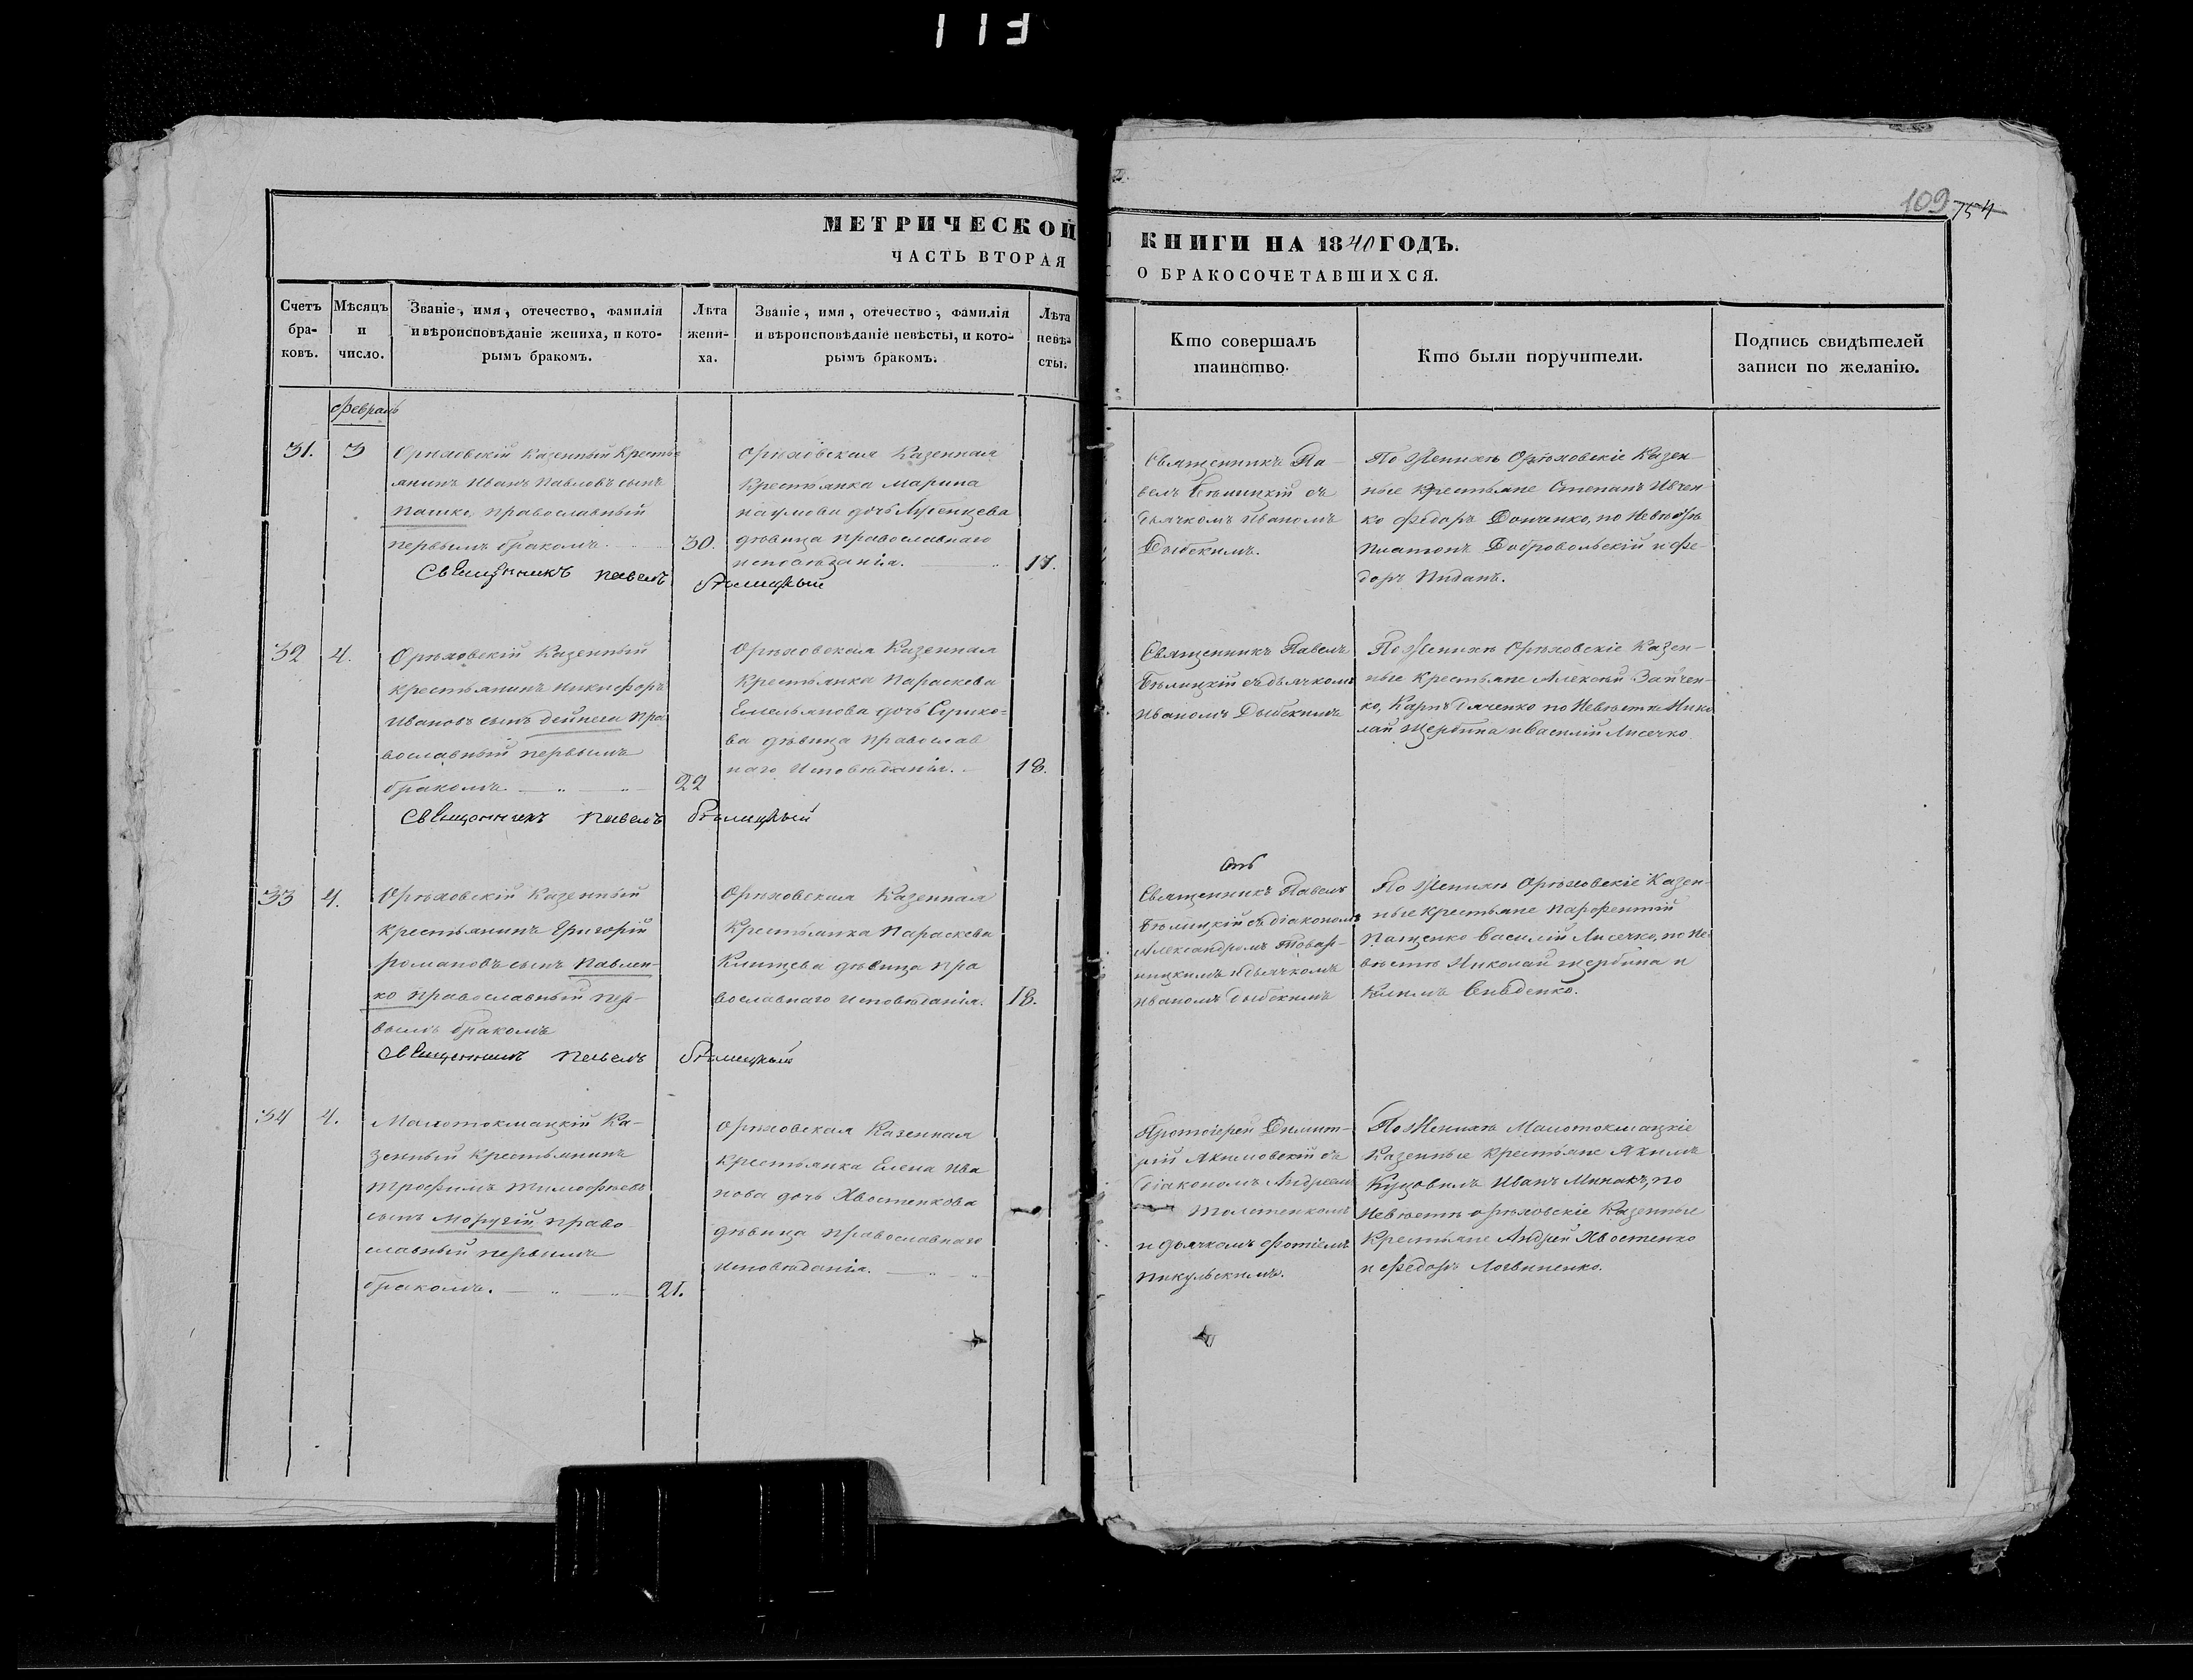 113
109 754
МЕТРИЧЕСКОЙ КНИГИ НА 1840 ГОДЪ.
ЧАСТЬ ВТОРАЯ О БРАКОСОЧЕТАВШИХСЯ.
Счетъ бра- ковъ.
Мѣсяцъ и число.
Званіе, имя, отечество, фамилія
и вѣроисповѣданіе жениха, и кото-
рымъ бракомъ.
Лѣта жени- ха.
Званіе, имя, отечество, фамилія
и вѣроисповѣданіе невѣсты, и кото-
рымъ бракомъ.
Лѣта невѣ- сты.
Кто совершалъ
таинство.
Кто были поручители.
Подпись свидѣтелей
записи по желанію.
Февраль
31. 3
Орѣховскій Казенный Кресть-
янинъ Иванъ Павловъ сынъ
Пашко, православный
первымъ бракомъ.
30.
Орѣховская Казенная
Крестьянка Марина
Наумова дочь
дѣвица православнаго
исповѣданія.
17.
Священникъ Па-
велъ Бѣлицкій съ
дьячкомъ Иваномъ
Дыбскимъ.
По Женихѣ Орѣховскіе Казен-
ные крестьяне Степанъ Ивчен-
ко Федоръ Донченко, по Невѣстѣ
Платонъ Добровольскій и Фе-
доръ
Священникъ Павелъ Бѣлицкый
32 4.
Орѣховскій Казенный
крестьянинъ Никифоръ
Ивановъ сынъ Дейнега пра
вославный первымъ
бракомъ.
22
Орѣховская Казенная
Крестьянка Параскева
Емельянова дочь Сушко-
ва дѣвица православ
наго Исповѣданія.
18.
Священникъ Павелъ
Бѣлицкій съ дьячкомъ
Иваномъ Дыбскимъ
По Женихѣ Орѣховскіе Казен-
ные крестьяне Алексѣй Зайчен-
ко, Карпъ Дяченко по Невѣстѣ Нико
лай Щербина и Василій Лисечко
Священникъ Павелъ Бѣлицкый
33 4.
Орѣховскій Казенный
крестьянинъ Григорій
Романовъ сынъ Павлен-
ко православный пер-
вымъ бракомъ
Орѣховская Казенная
Крестьянка Параскева
дѣвица пра
вославнаго Исповѣданія.
18.
Священникъ Павелъ
Бѣлицкій съ діакономъ
Александромъ Товар-
ницкимъ и дьячкомъ
Иваномъ Дыбскимъ
По Женихѣ Орѣховскіе Казен-
ные крестьяне Парфентій
Пащенко Василій Лисечко, по Не
вѣстѣ Николай Щербина и
Климъ
Священникъ Павелъ Бѣлицкый
34 4.
Малотокмацкій Ка-
зенный Крестьянинъ
Трофимъ Тимофѣевъ
сынъ право
славный первымъ
бракомъ.
21.
Орѣховская Казенная
крестьянка Елена Ива
нова дочь Хвостенкова
дѣвица православнаго
исповѣданія.
Протоіерей Димит-
рій Акимовскій съ
діакономъ Андреемъ
Толстенкомъ
и дьячкомъ Фотіемъ
Пикульскимъ.
По Женихѣ Малотокмацкіе
Казенные крестьяне Якимъ
Иванъ Минакъ, по
Невѣстѣ Орѣховскіе Казенные
Крестьяне Андрей Хвостенко
и Федоръ Логвиненко.